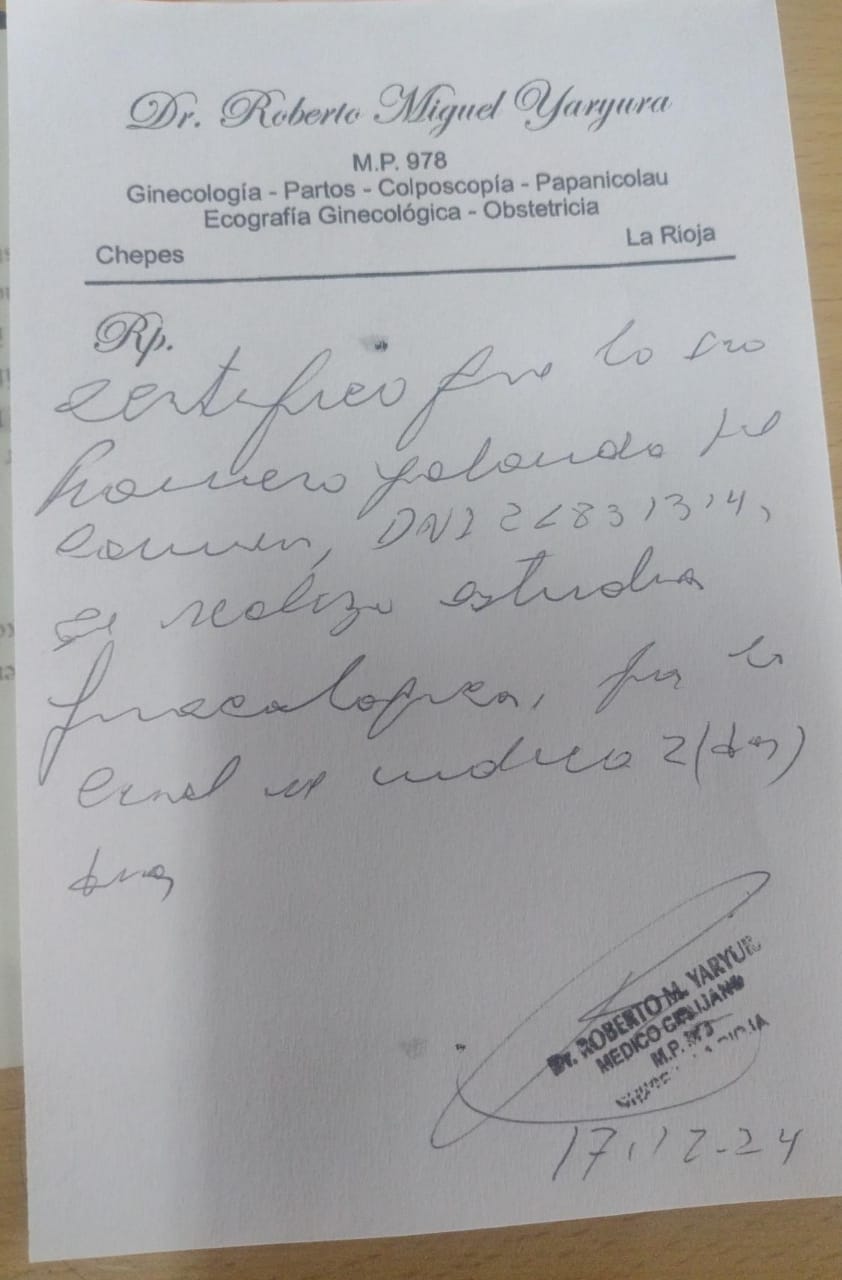 Dr. Roberto Miguel Yaryura
M.P. 978
Ginecología - Partos - Colposcopía - Papanicolau
Ecografía Ginecológica - Obstetricia
Chepes
La Rioja
Rp.
Certifico que la sra
Romero Yolanda del
Carmen, DNI
se realizo estudios
ginecologicos, por lo
cual se indica 2 (dos)
dias
Dr. ROBERTO M. YARYUR
MEDICO CIRUJANO
M.P.
LA RIOJA
17.12.24